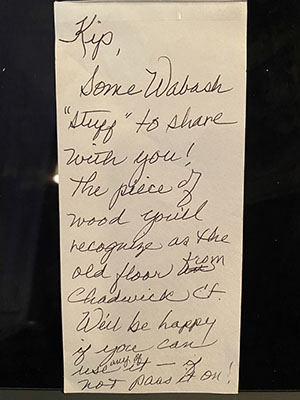 Kip,
Some Wabash
"stuff" to share
with you!
The piece of
wood you'll
recognize as the
old floor from
Chadwick Ct.
We'll be happy
if you can
use any of it — if
not pass it on!